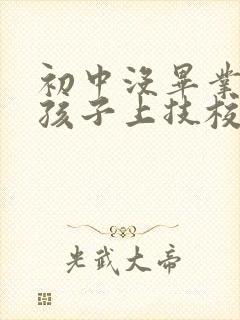 初中没畢業
孩子上技校
光武大帝